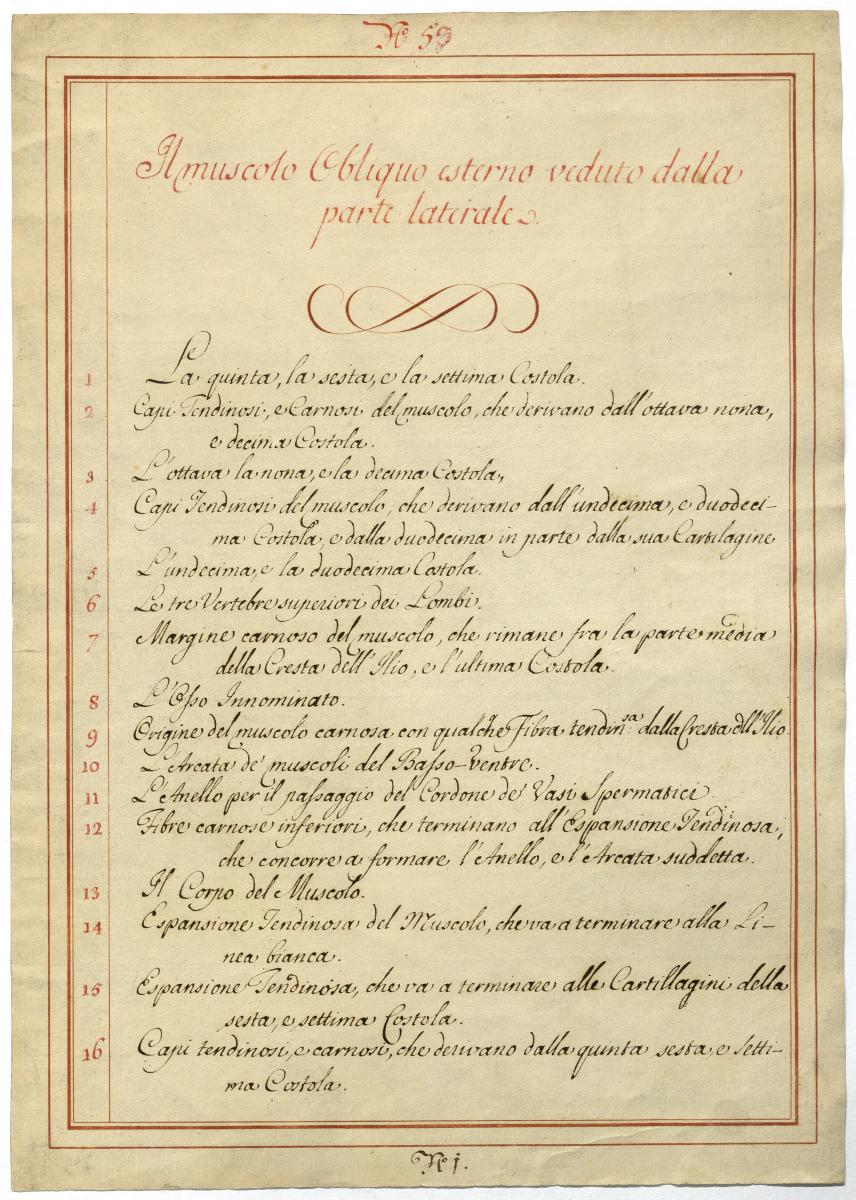 No 59
Il muscolo Obliquo esterno veduto dalla
parte laterale.
1 La quinta, la sesta, e la settima Costola.
2 Capi Tendinosi, e Carnosi del muscolo, che derivano dall'ottava nona,
e decima Costola.
3 L'ottava la nona, e la decima Costola,
4 Capi Tendinosi del muscolo, che derivano dall'undecima, e duodeci-
ma Costola, e dalla duodecima in parte dalla sua Cartilagine
5 L'undecima, e la duodecima Costola.
6 Le tre Vertebre superiori dei Lombi.
7 Margine carnoso del muscolo, che rimane fra la parte media
della Cresta dell'Ilio, e l'ultima Costola.
8 L'Osso Innominato.
9 Origine del muscolo carnosa con qualche Fibra tendin.sa dalla Cresta dell'Ilio.
10 L'Arcata de' muscoli del Basso-ventre.
11 L'Anello per il passaggio del Cordone de' Vasi Spermatici.
12 Fibre carnose inferiori, che terminano all'Espansione Tendinosa,
che concorre a formare l'Anello, e l'Arcata suddetta.
13 Il Corpo del Muscolo.
14 Espansione Tendinosa del Muscolo, che va a terminare alla Li-
nea bianca.
15 Espansione Tendinosa, che va a terminare alle Cartillagini della
sesta, e settima Costola.
16 Capi tendinosi, e carnosi, che derivano dalla quinta sesta, e setti-
ma Costola.
No 1.